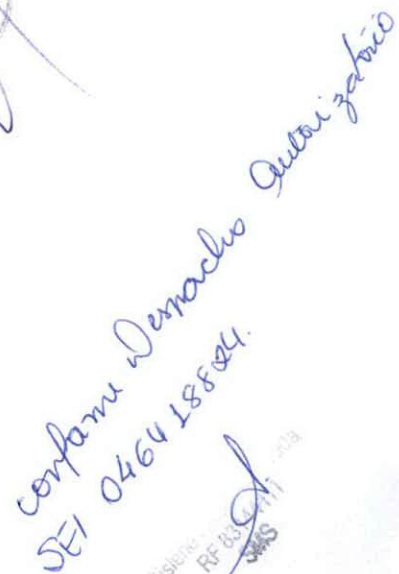 conforme Despacho Autorizatório
SEI 046418824.
RF 83
SMS